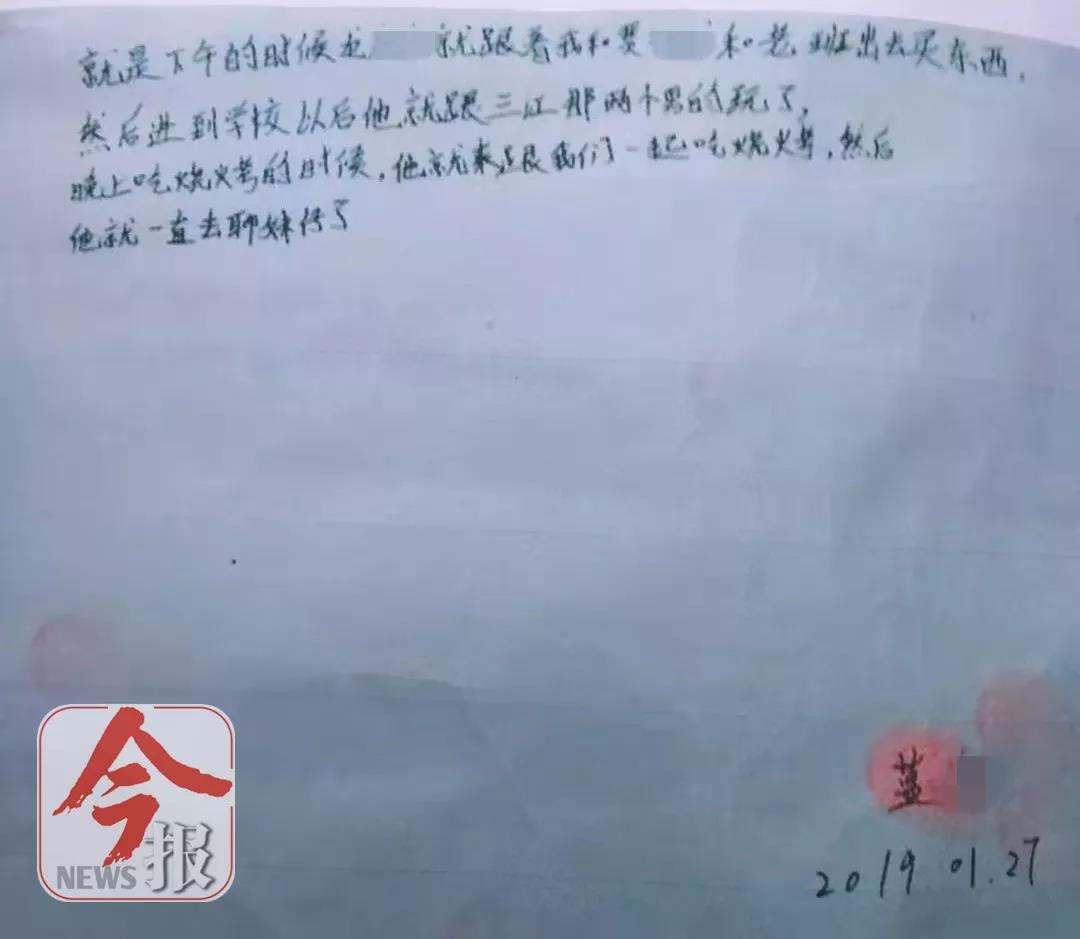 就是下午的时候龙 就跟着我和樊 和老班出去买东西,
然后进到学校以后他就跟三江那两个男的玩了,
晚上吃烧火考的时候,他就来跟我们一起吃烧火考,然后
他就一直去聊妹仔了
蓝
2019.01.27
今报
NEWS